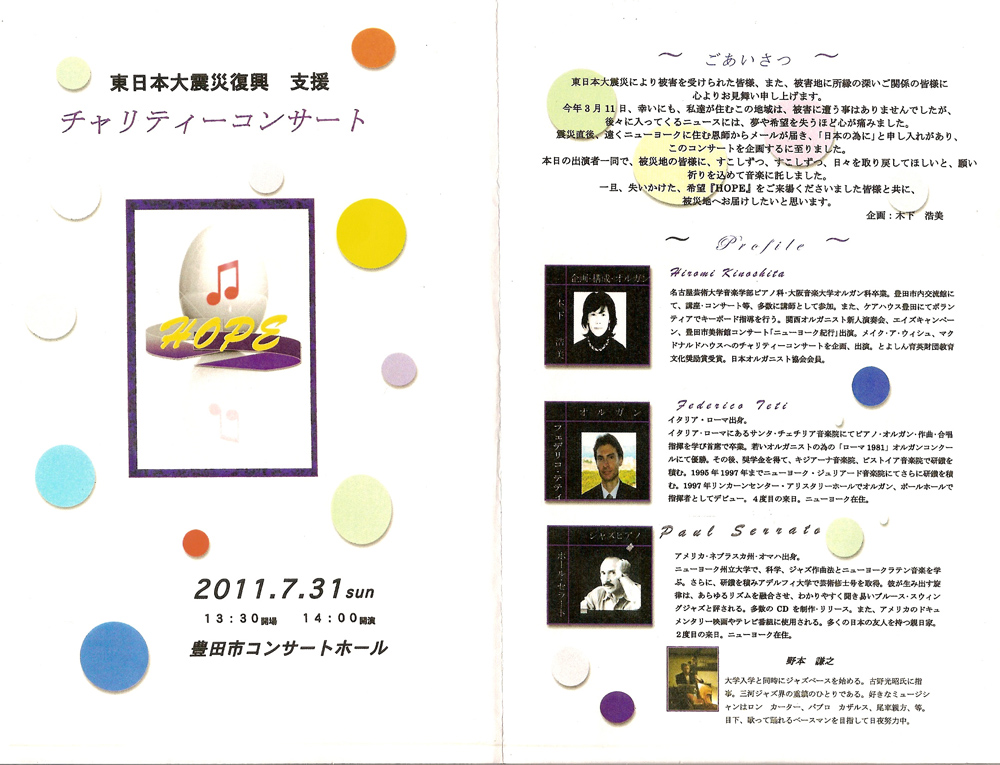 東日本大震災復興　支援
チャリティーコンサート
HOPE
2011.7.31sun
13:30開場　14:00開演
豊田市コンサートホール
～ ごあいさつ ～
東日本大震災により被害を受けられた皆様、また、被害地に所縁の深いご関係の皆様に
心よりお見舞い申し上げます。
今年3月11日、幸いにも、私達が住むこの地域は、被害に遭う事はありませんでしたが、
後々に入ってくるニュースには、夢や希望を失うほど心が痛みました。
震災直後、遠くニューヨークに住む恩師からメールが届き、「日本の為に」と申し入れがあり、
このコンサートを企画するに至りました。
本日の出演者一同で、被災地の皆様に、すこしずつ、すこしずつ、日々を取り戻してほしいと、願い
祈りを込めて音楽に託しました。
一旦、失いかけた、希望『HOPE』をご来場くださいました皆様と共に、
被災地へお届けしたいと思います。
企画：木下　浩美
～ Profile ～
企画・構成・オルガン
木下　浩美
Hiromi Kinoshita
名古屋芸術大学音楽学部ピアノ科・大阪音楽大学オルガン科卒業。豊田市内交流館に
て、講座・コンサート等、多数に講師として参加。また、ケアハウス豊田にてボラン
ティアでキーボード指導を行う。関西オルガニスト新人演奏会、エイズキャンペー
ン、豊田市美術館コンサート「ニューヨーク紀行」出演。メイク・ア・ウィシュ、マク
ドナルドハウスへのチャリティーコンサートを企画、出演。とよしん育英財団教育
文化奨励賞受賞。日本オルガニスト協会会員。
オルガン
フェデリコ・テティ
Federico Teti
イタリア・ローマ出身。
イタリア・ローマにあるサンタ・チェチリア音楽院にてピアノ・オルガン・作曲・合唱
指揮を学び首席で卒業。若いオルガニストの為の「ローマ1981」オルガンコンクー
ルにて優勝。その後、奨学金を得て、キジアーナ音楽院、ピストイア音楽院で研鑽を
積む。1995年1997年までニューヨーク・ジュリアード音楽院にてさらに研鑽を積
む。1997年リンカーンセンター・アリスタリーホールでオルガン、ポールホールで
指揮者としてデビュー。４度目の来日。ニューヨーク在住。
ジャズピアノ
ポール・セラート
Paul Serrato
アメリカ・ネブラスカ州・オマハ出身。
ニューヨーク州立大学で、科学、ジャズ作曲法とニューヨークラテン音楽を学
ぶ。さらに、研鑽を積みアデルフィ大学で芸術修士号を取得。彼が生み出す旋
律は、あらゆるリズムを融合させ、わかりやすく聞き易いブルース・スウィン
グジャズと評される。多数のCDを制作・リリース。また、アメリカのドキュ
メンタリー映画やテレビ番組に使用される。多くの日本の友人を持つ親日家。
２度目の来日。ニューヨーク在住。
野本　謙之
大学入学と同時にジャズベースを始める。古野光昭氏に指
事。三河ジャズ界の重鎮のひとりである。好きなミュージシ
ャンはロン　カーター、パブロ　カザルス、尾車親方、等。
目下、歌って踊れるベースマンを目指して日夜努力中。